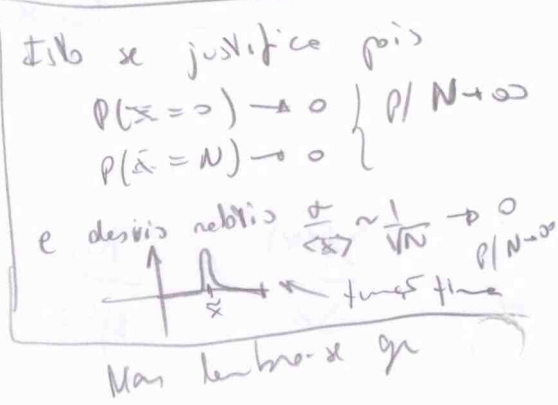 Isto se justifica pois
P(x̄ = 0) → 0 } P/ N → ∞
P(x̄ = N) → 0
e desvio relativo σ/<x> ~ 1/√N → 0 P/ N→∞
x̃ ← função fina
Mas lembra-se que